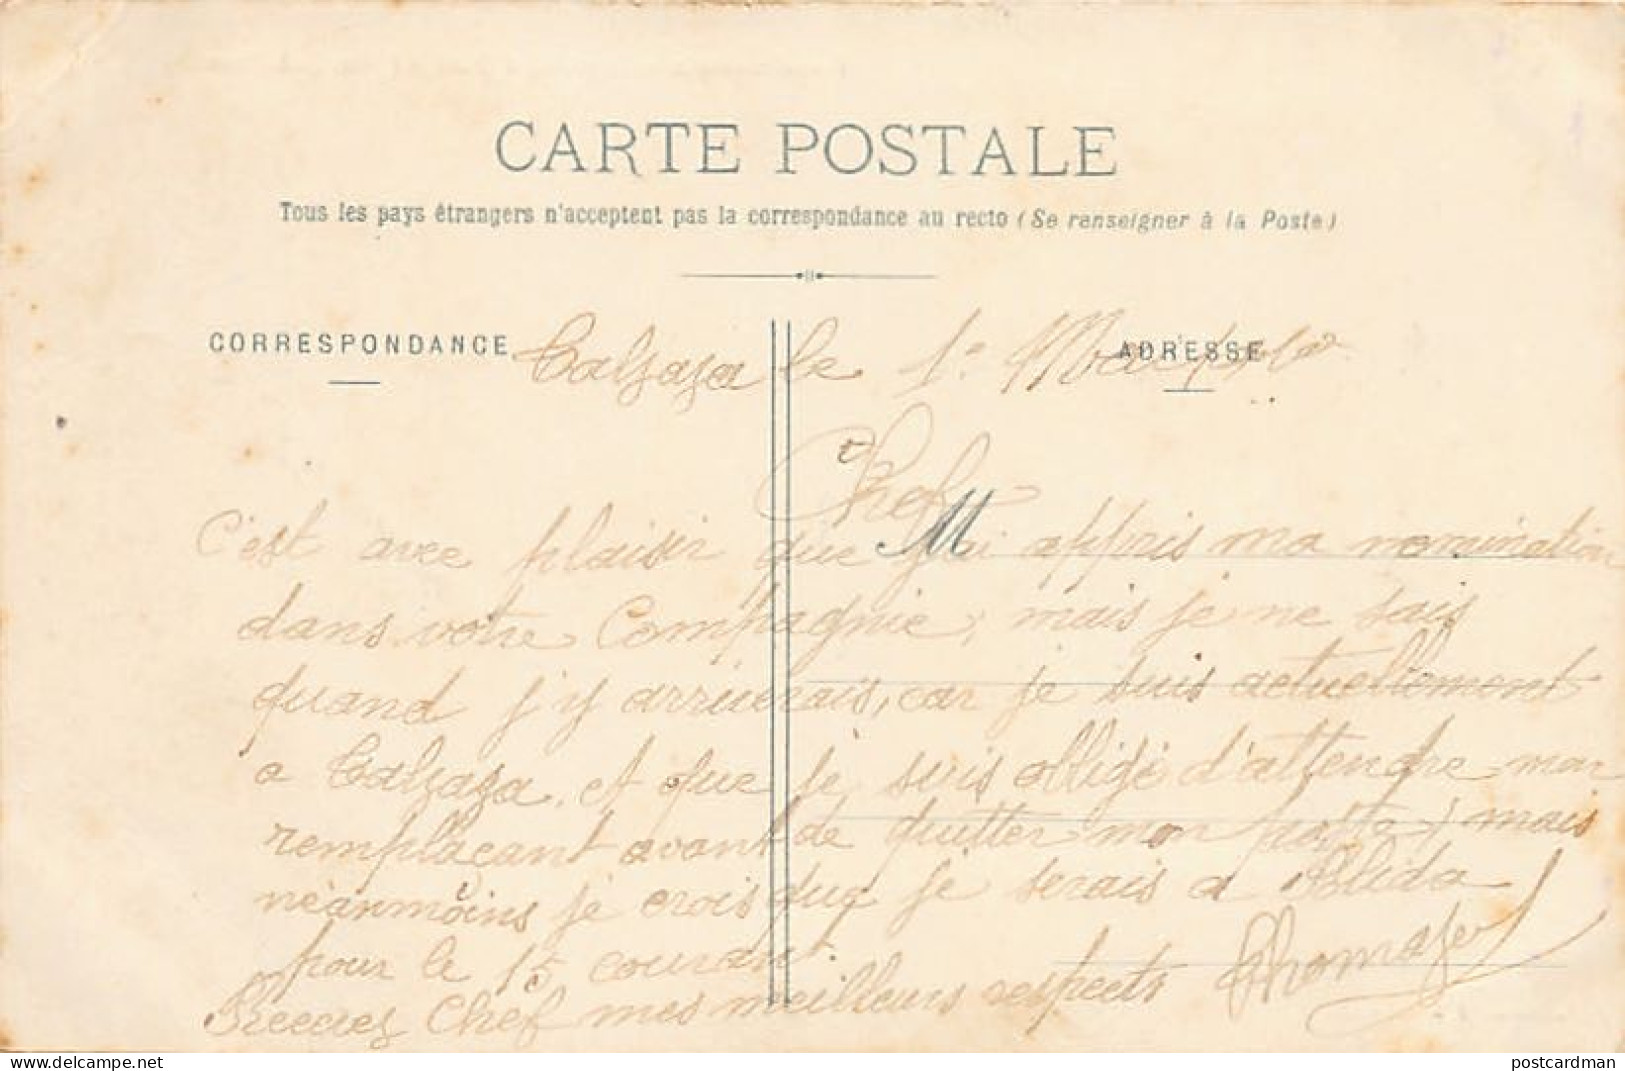 CARTE POSTALE
Tous les pays étrangers n'acceptent pas la correspondance au recto (Se renseigner à la Poste)
CORRESPONDANCE
ADRESSE
Talzaza le 1e Mars
Chef
M
C'est avec plaisir que j'ai appris ma nomination
dans votre Compagnie, mais je ne sais
quand j'y arriverais, car je suis actuellement
a Talzaza. et que je suis obligé d'attendre mon
remplaçant avant de quitter mon poste; mais
néanmoins je crois que je serais a Blida
pour le 15 courant.
Recevez Chef mes meilleurs respects Thomazer
delcampe.net
postcardman